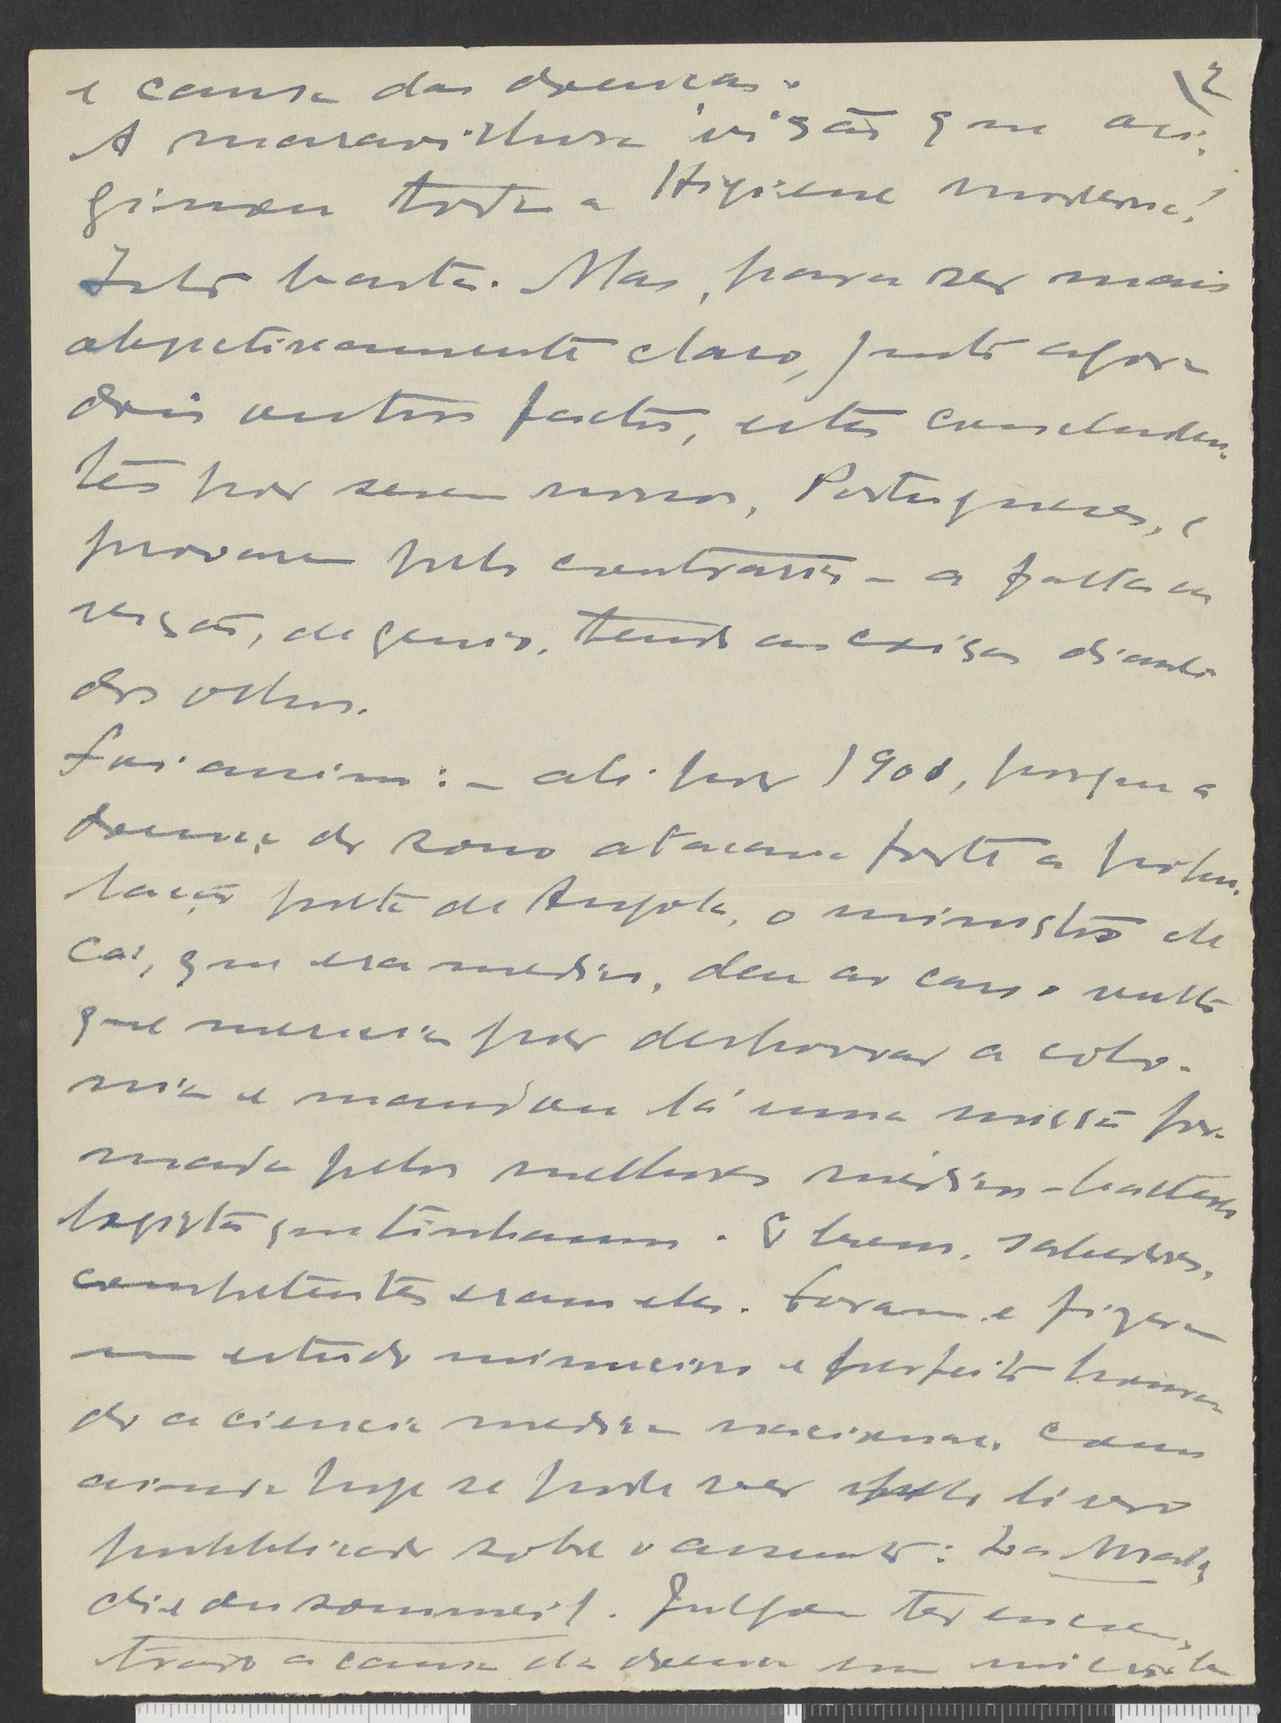 2
e causa das doenças.
A maravilhosa visão que ori-
ginou toda a Higiene moderna!
Isto basta. Mas, para ser mais
objectivamente claro, junto agora
dois outros factos, estes concluden-
tes por serem nossos, Portugueses, e
provarem pelo contrario – a falta de
visão, de genio, tendo as coisas diante
dos olhos.
Foi assim: – ali por 1900, porque a
doença do sono atacava forte a popu-
lação preta de Angola, o ministro de
cá, que era medico, deu ao caso o vulto
que merecia por despovoar a colo-
nia e mandou lá uma missão for-
mada pelos melhores médicos-bacterio
logistas que tinhamos. E bons, sabedores,
competentes eram eles. Foram e fizeram
um estudo minucioso e perfeito honran
do a ciencia medica nacional, como
ainda hoje se pode ver pelo livro
publicado sobre o assunto: La Mala
die du sommeil. Julgou ter encon
trado a causa da doença num